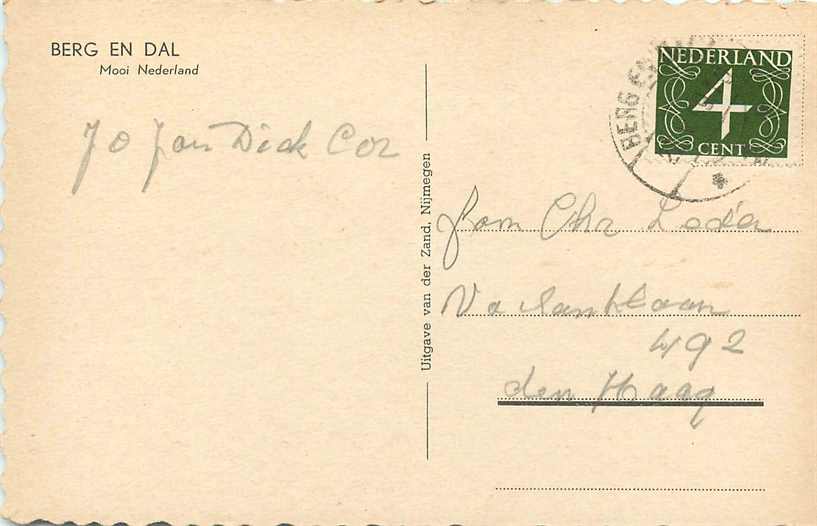 BERG EN DAL
Mooi Nederland
Jo Jan Dick Cor
Uitgave van der Zand, Nijmegen
NEDERLAND
4
CENT
BERG EN
Fam Chr
492
den Haag